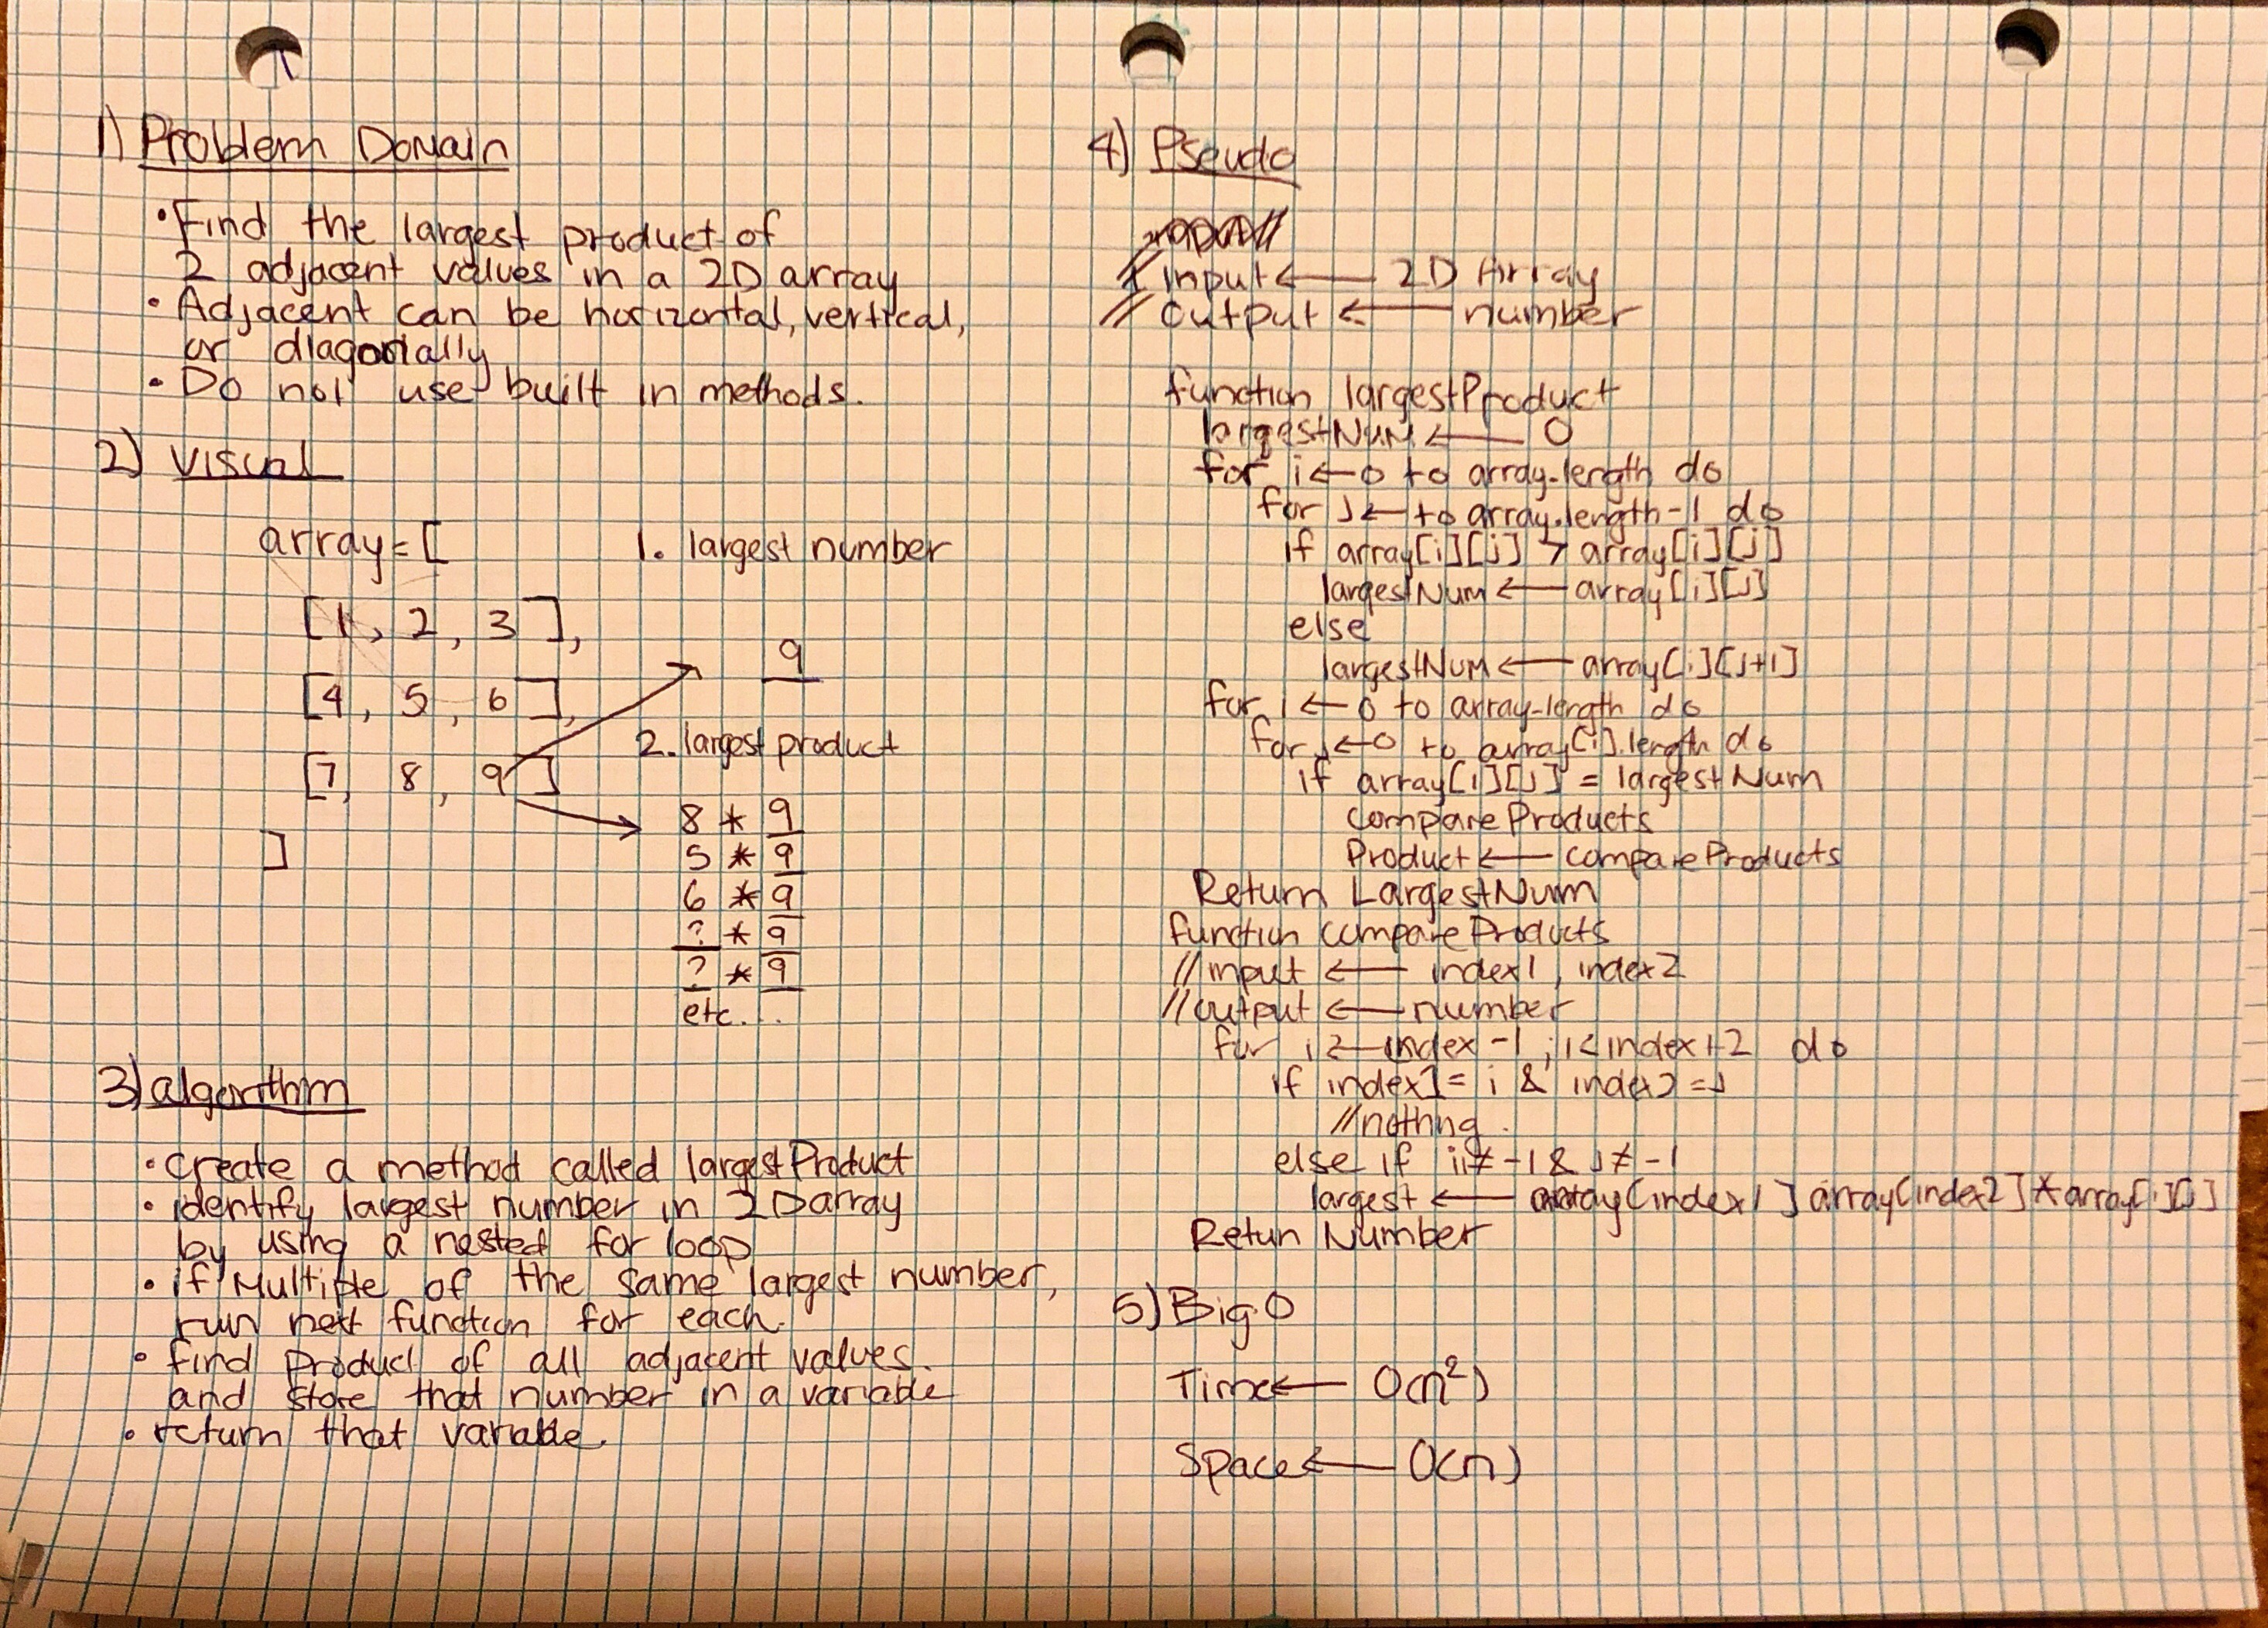 1) Problem Domain
• Find the largest product of
2 adjacent values in a 2D array
• Adjacent can be horizontal, vertical,
or diagonially
• Do not use built in methods.
2) Visual
array = [
[1, 2, 3],
[4, 5, 6],
[7, 8, 9]
]
1. largest number
9
2. largest product
8 * 9
5 * 9
6 * 9
? * 9
? * 9
etc...
3) algorithm
• create a method called largestProduct
• identify largest number in 2D array
by using a nested for loop
• if Multiple of the same largest number,
run next function for each.
• find product of all adjacent values.
and store that number in a variable
• return that variable.
4) Pseudo
// input ← 2D Array
// output ← number
function largestProduct
largestNum ← 0
for i ← 0 to array.length do
for j ← to array.length-1 do
if array[i][j] > array[i][j]
largestNum ← array[i][j]
else
largestNum ← array[i][j+1]
for i ← 0 to array.length do
for j ← 0 to array[i].length do
if array[i][j] = largestNum
compareProducts
Product ← compareProducts
Return LargestNum
function compareProducts
// input ← index1, index2
// output ← number
for i ← index -1 ; i < index+2 do
if index1 = i & index2 = j
// nothing.
else if i ≠ -1 & j ≠ -1
largest ← array[index1] array[index2] * array[i][j]
Retun Number
5) Big O
Time ← O(n²)
Space ← O(n)